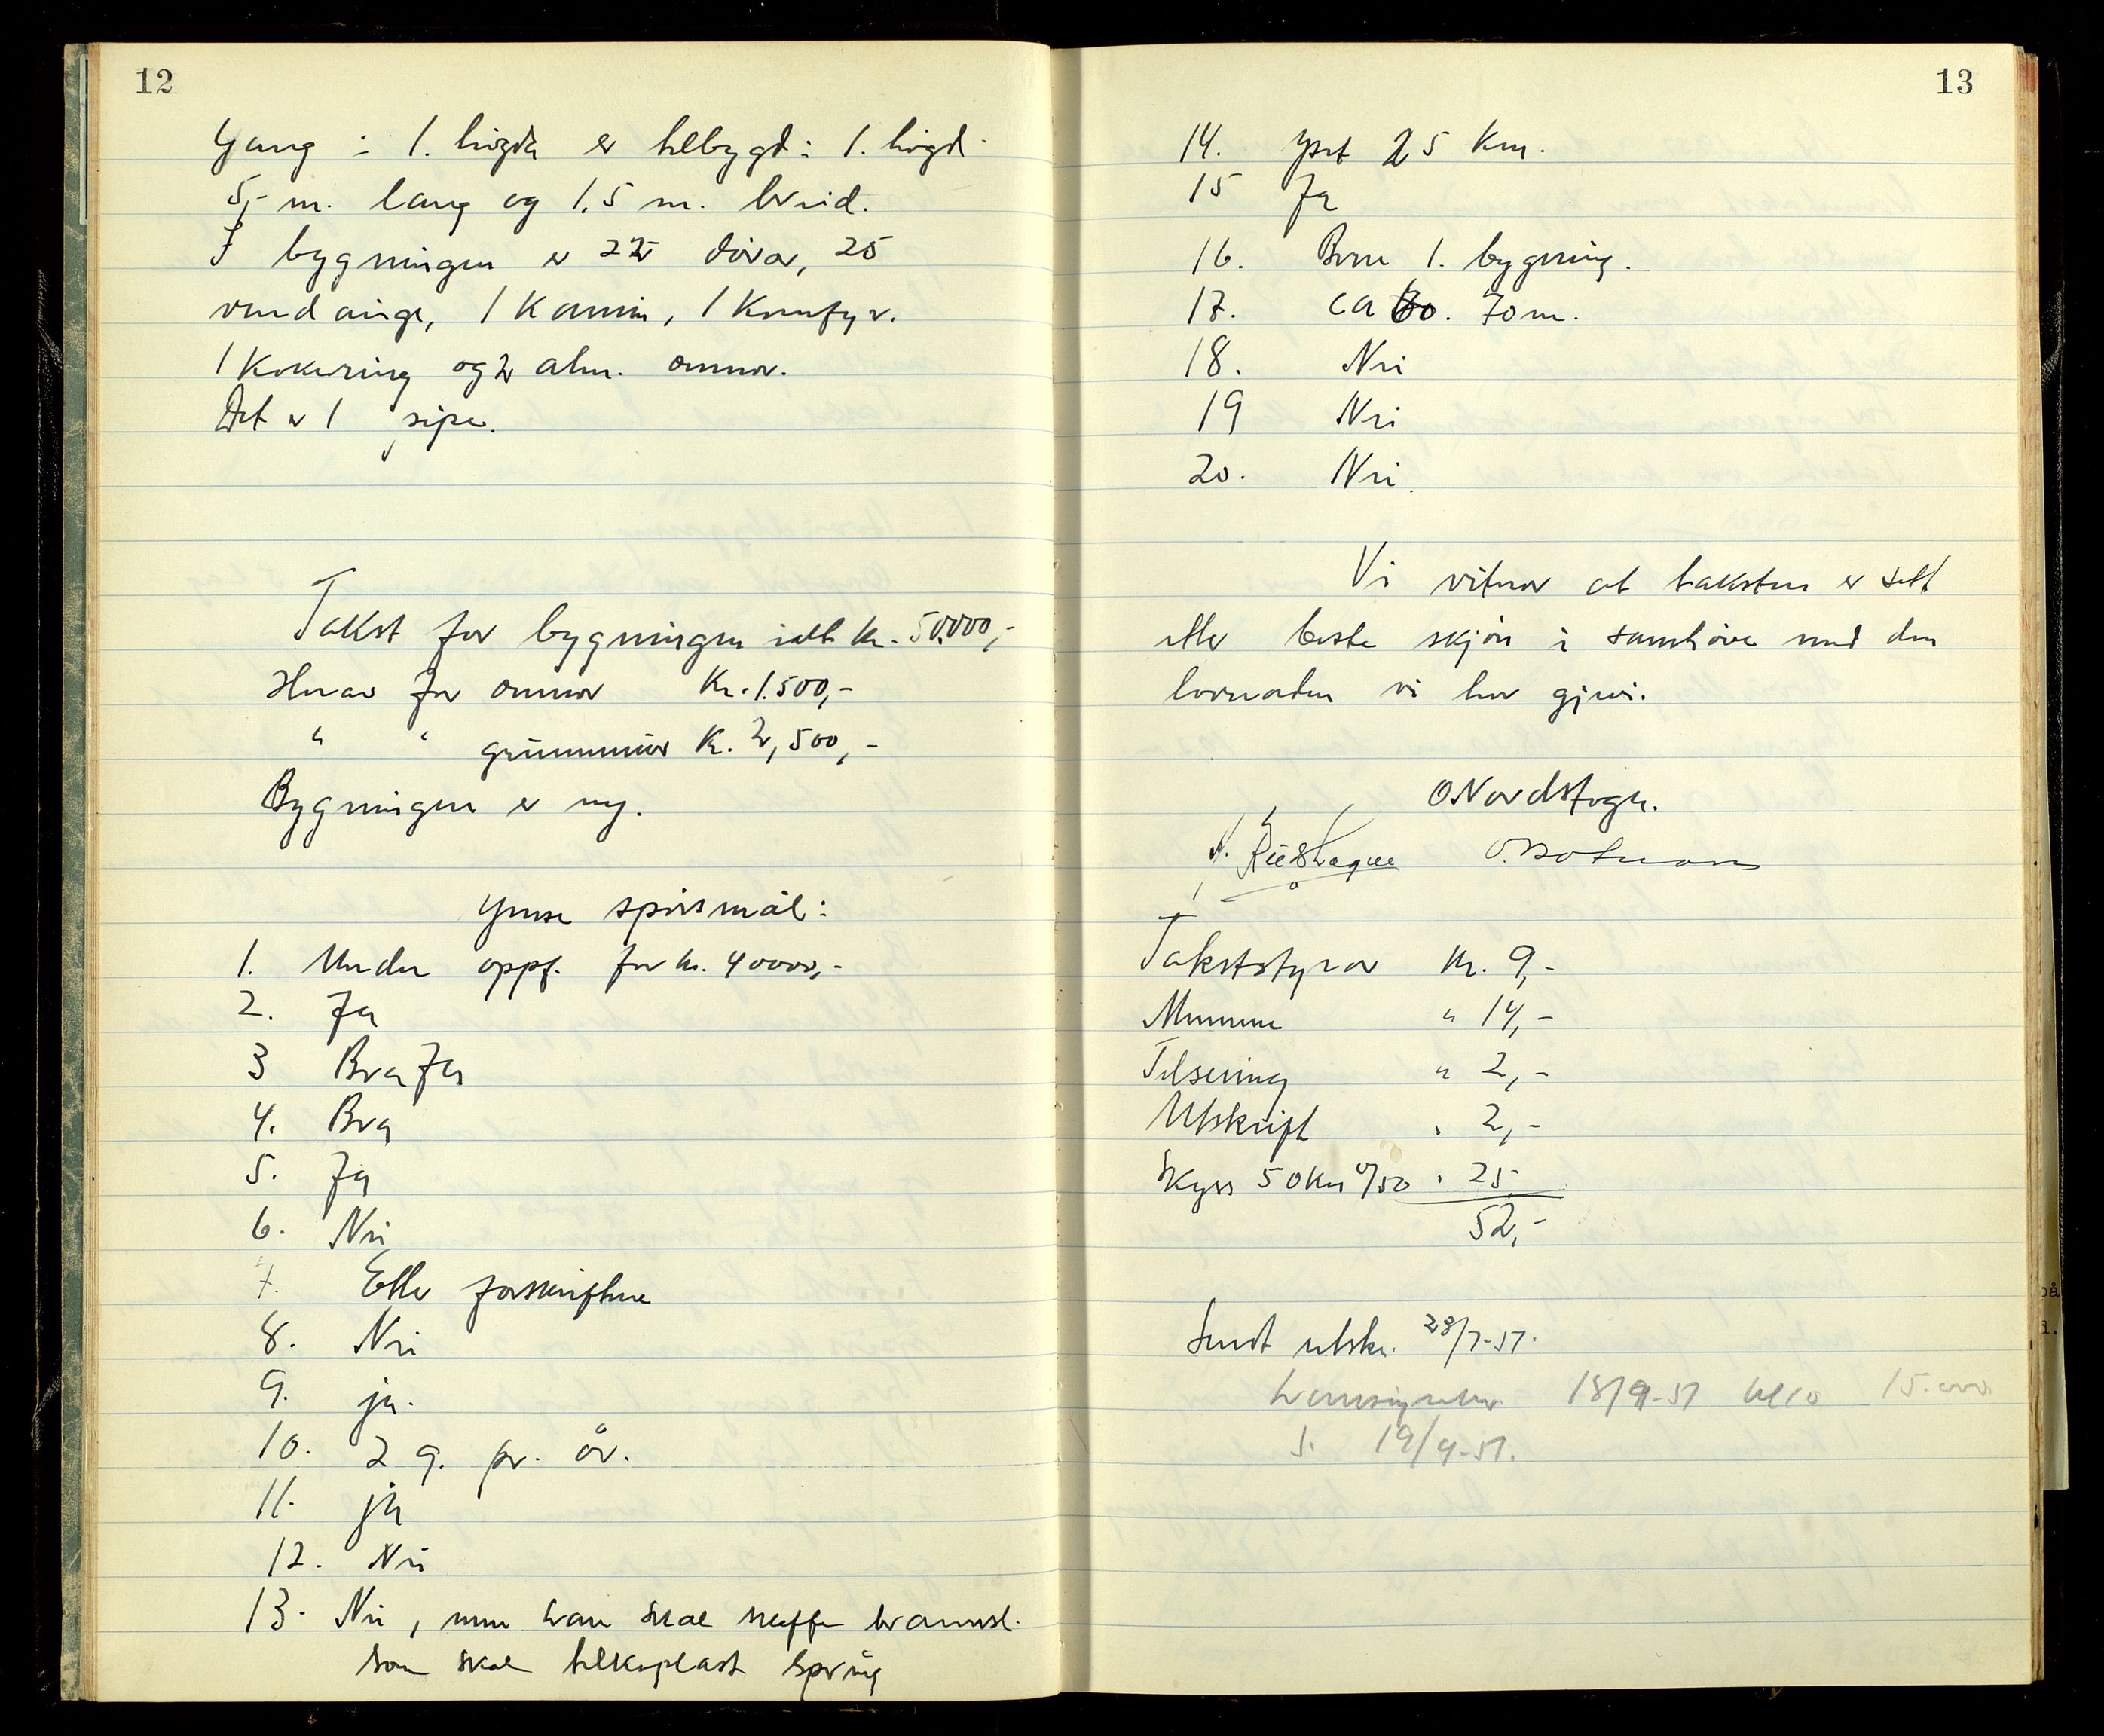 12
Gang i 1. högda er tilbygd i 1. högd
5,- m. lang og 1.5 m. breid.
I bygningen er 22 dörar, 25
vindauge, 1 Kamin, 1 Komfyr.
1 Kokering og 2 alm. omnar.
Det er 1 pipe.
Takst for bygningen ialt kr. 50.000,-
Herav for omnar Kr. 1.500,-
" " grunnmur Kr. 2,500,-
Bygningen er ny.
Ymse spörsmål:
1. Under oppf. for kr. 40000,-
2. Ja
3 Bra Ja
4. Bra
5. Ja
6. Nei
7. Etter forskriftene
8. Nei
9. ja.
10. 2 g. pr. år.
11. ja
12. Nei
13. Nei, men han skal skaffe brannsl.
som skal tilkoplast spring
13
14. Yset 25 Km.
15 Ja
16. Bere 1. bygning.
17. ca 60. 70 m.
18. Nei
19 Nei
20. Nei.
Vi vitnar at taksten er sett
etter beste skjön i samhöve med den
lovnaden vi har gjevi.
O. Nordstoga.
Takststyrar Kr. 9,-
Mennene " 14,-
Tilsening " 2,-
Utskrift " 2,-
Skyss 50 Km 0/50 " 25
52,-
Sendt utskr. 28/7-51.
18/9-51 15.000
S. 19/9-51.